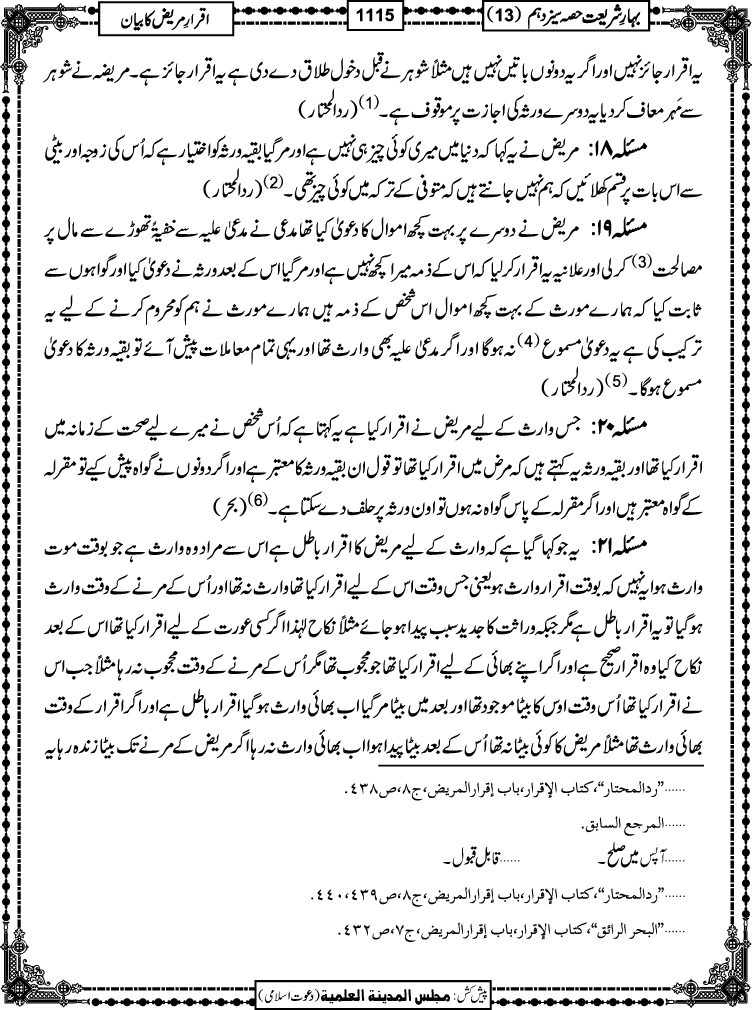 بہارِ شریعت حصہ سیزدہم (13)
1115
اقرارِ مریض کا بیان
یہ اقرار جائز نہیں اور اگر یہ دونوں باتیں نہیں ہیں مثلاً شوہر نے قبل دخول طلاق دے دی ہے یہ اقرار جائز ہے۔ مریضہ نے شوہر
سے مَہر معاف کر دیا یہ دوسرے ورثہ کی اجازت پر موقوف ہے۔(1) (ردالمحتار)
مسئلہ ۱۸: مریض نے یہ کہا کہ دنیا میں میری کوئی چیز ہی نہیں ہے اور مر گیا بقیہ ورثہ کو اختیار ہے کہ اُس کی زوجہ اور بیٹی
سے اس بات پر قسم کھلائیں کہ ہم نہیں جانتے ہیں کہ متوفی کے ترکہ میں کوئی چیز تھی۔(2) (ردالمحتار)
مسئلہ ۱۹: مریض نے دوسرے پر بہت کچھ اموال کا دعویٰ کیا تھا مدعی نے مدعیٰ علیہ سے خفیۃً تھوڑے سے مال پر
مصالحت(3) کر لی اور علانیہ یہ اقرار کر لیا کہ اس کے ذمہ میرا کچھ نہیں ہے اور مر گیا اس کے بعد ورثہ نے دعویٰ کیا اور گواہوں سے
ثابت کیا کہ ہمارے مورث کے بہت کچھ اموال اس شخص کے ذمہ ہیں ہمارے مورث نے ہم کو محروم کرنے کے لیے یہ
ترکیب کی ہے یہ دعویٰ مسموع (4) نہ ہوگا اور اگر مدعیٰ علیہ بھی وارث تھا اور یہی تمام معاملات پیش آئے تو بقیہ ورثہ کا دعویٰ
مسموع ہوگا۔(5) (ردالمحتار)
مسئلہ ۲۰: جس وارث کے لیے مریض نے اقرار کیا ہے یہ کہتا ہے کہ اُس شخص نے میرے لیے صحت کے زمانہ میں
اقرار کیا تھا اور بقیہ ورثہ یہ کہتے ہیں کہ مرض میں اقرار کیا تھا تو قول ان بقیہ ورثہ کا معتبر ہے اور اگر دونوں نے گواہ پیش کیے تو مقرلہ
کے گواہ معتبر ہیں اور اگر مقرلہ کے پاس گواہ نہ ہوں تو اون ورثہ پر حلف دے سکتا ہے۔(6) (بحر)
مسئلہ ۲۱: یہ جو کہا گیا ہے کہ وارث کے لیے مریض کا اقرار باطل ہے اس سے مراد وہ وارث ہے جو بوقت موت
وارث ہوا یہ نہیں کہ بوقت اقرار وارث ہو یعنی جس وقت اس کے لیے اقرار کیا تھا وارث نہ تھا اور اُس کے مرنے کے وقت وارث
ہو گیا تو یہ اقرار باطل ہے مگر جبکہ وراثت کا جدید سبب پیدا ہو جائے مثلاً نکاح لہٰذا اگر کسی عورت کے لیے اقرار کیا تھا اس کے بعد
نکاح کیا وہ اقرار صحیح ہے اور اگر اپنے بھائی کے لیے اقرار کیا تھا جو محجوب تھا مگر اُس کے مرنے کے وقت محجوب نہ رہا مثلاً جب اس
نے اقرار کیا تھا اُس وقت اوس کا بیٹا موجود تھا اور بعد میں بیٹا مر گیا اب بھائی وارث ہوگیا اقرار باطل ہے اور اگر اقرار کے وقت
بھائی وارث تھا مثلاً مریض کا کوئی بیٹا نہ تھا اُس کے بعد بیٹا پیدا ہوا اب بھائی وارث نہ رہا اگر مریض کے مرنے تک بیٹا زندہ رہا یہ
......"ردالمحتار"،کتاب الإقرار،باب إقرار المریض،ج۸،ص۴۳۸.
......المرجع السابق.
......آپس میں صلح۔ ......قابل قبول۔
......"ردالمحتار"،کتاب الإقرار،باب إقرار المریض،ج۸،ص۴۳۹،۴۴۰.
......"البحر الرائق"،کتاب الإقرار،باب إقرار المریض،ج۷،ص۴۳۲.
پیش کش: مجلس المدینۃ العلمیۃ (دعوت اسلامی)